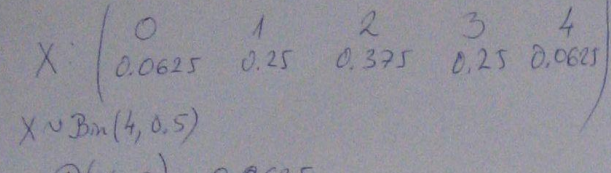 0 1 2 3 4
X: ( 0.0625 0.25 0.375 0.25 0.0625 )
X ~ Bin(4, 0.5)